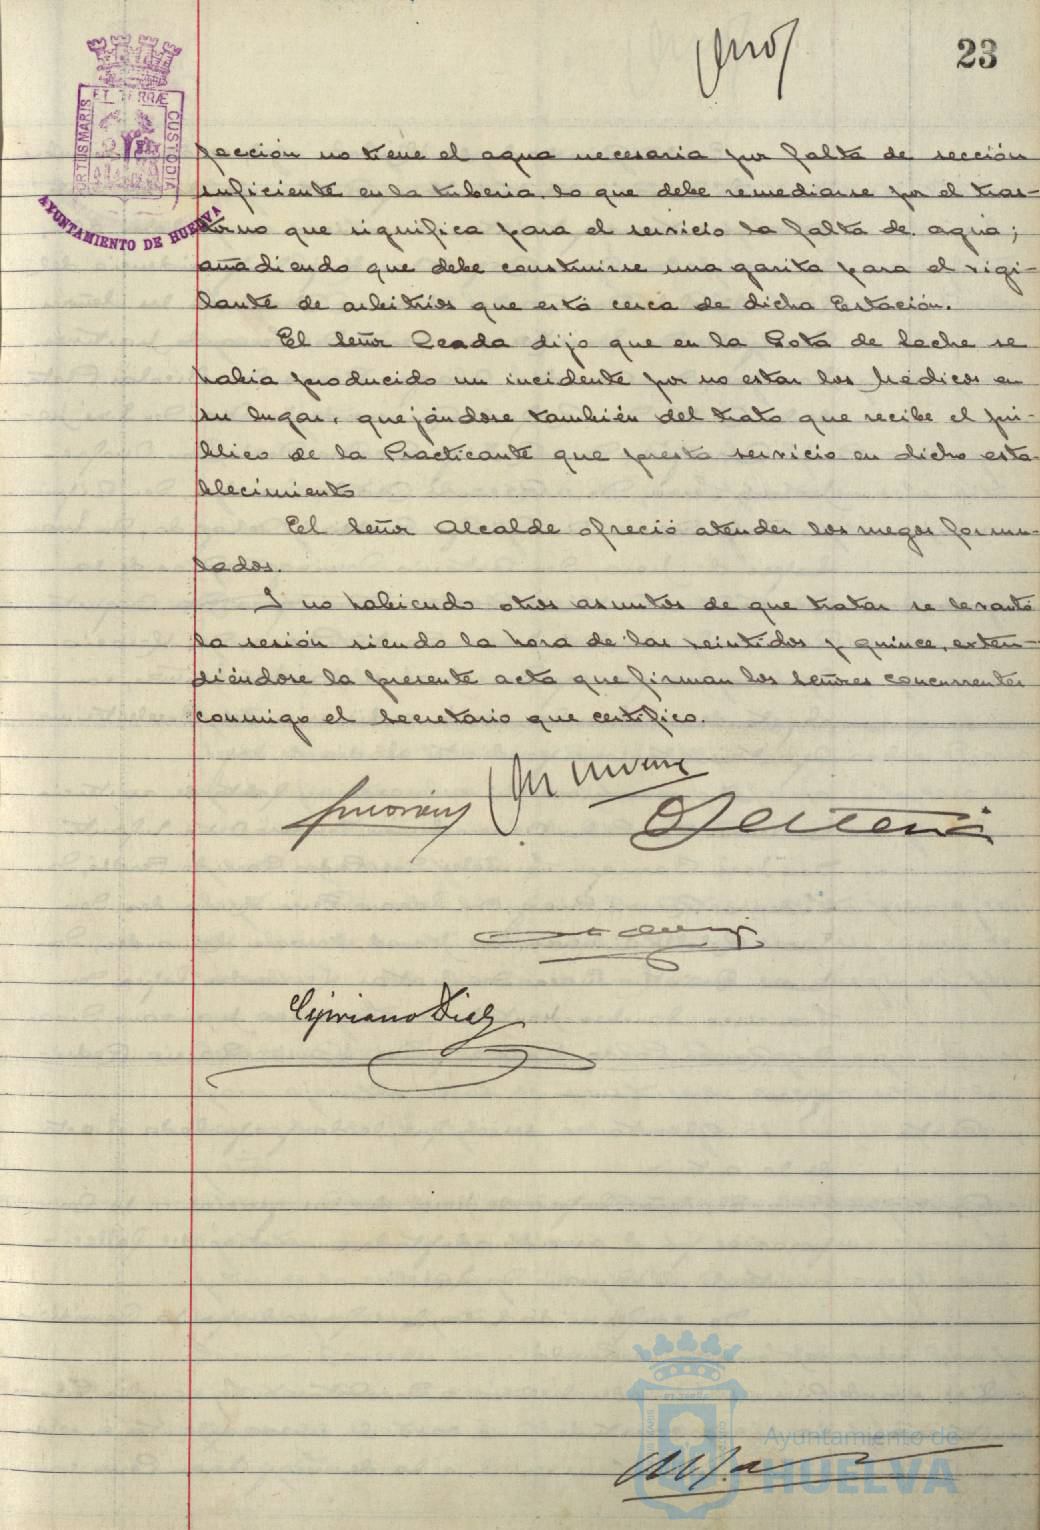 23
ET TERRÆ
PORTUS MARIS
CUSTODIA
AYUNTAMIENTO DE HUELVA
fección no tiene el agua necesaria por falta de sección
suficiente en la tuberia, lo que debe remediarse por el tras-
torno que significa para el servicio la falta de agua;
añadiendo que debe construirse una garita para el vigi-
lante de arbitrios que está cerca de dicha Estación.
El Señor dijo que en la Gota de Leche se
habia producido un incidente por no estar los Médicos en
su lugar, quejándose también del trato que recibe el pú-
blico de la Practicante que presta servicio en dicho esta-
blecimiento
El Señor Alcalde ofreció atender los ruegos formu-
lados.
I no habiendo otros asuntos de que tratar se levantó
la sesión siendo la hora de las veintidos y quince, exten-
diéndose la presente acta que firman los Señores concurrentes
conmigo el Secretario que certifico.
Cipriano Diez
Ayuntamiento de
HUELVA